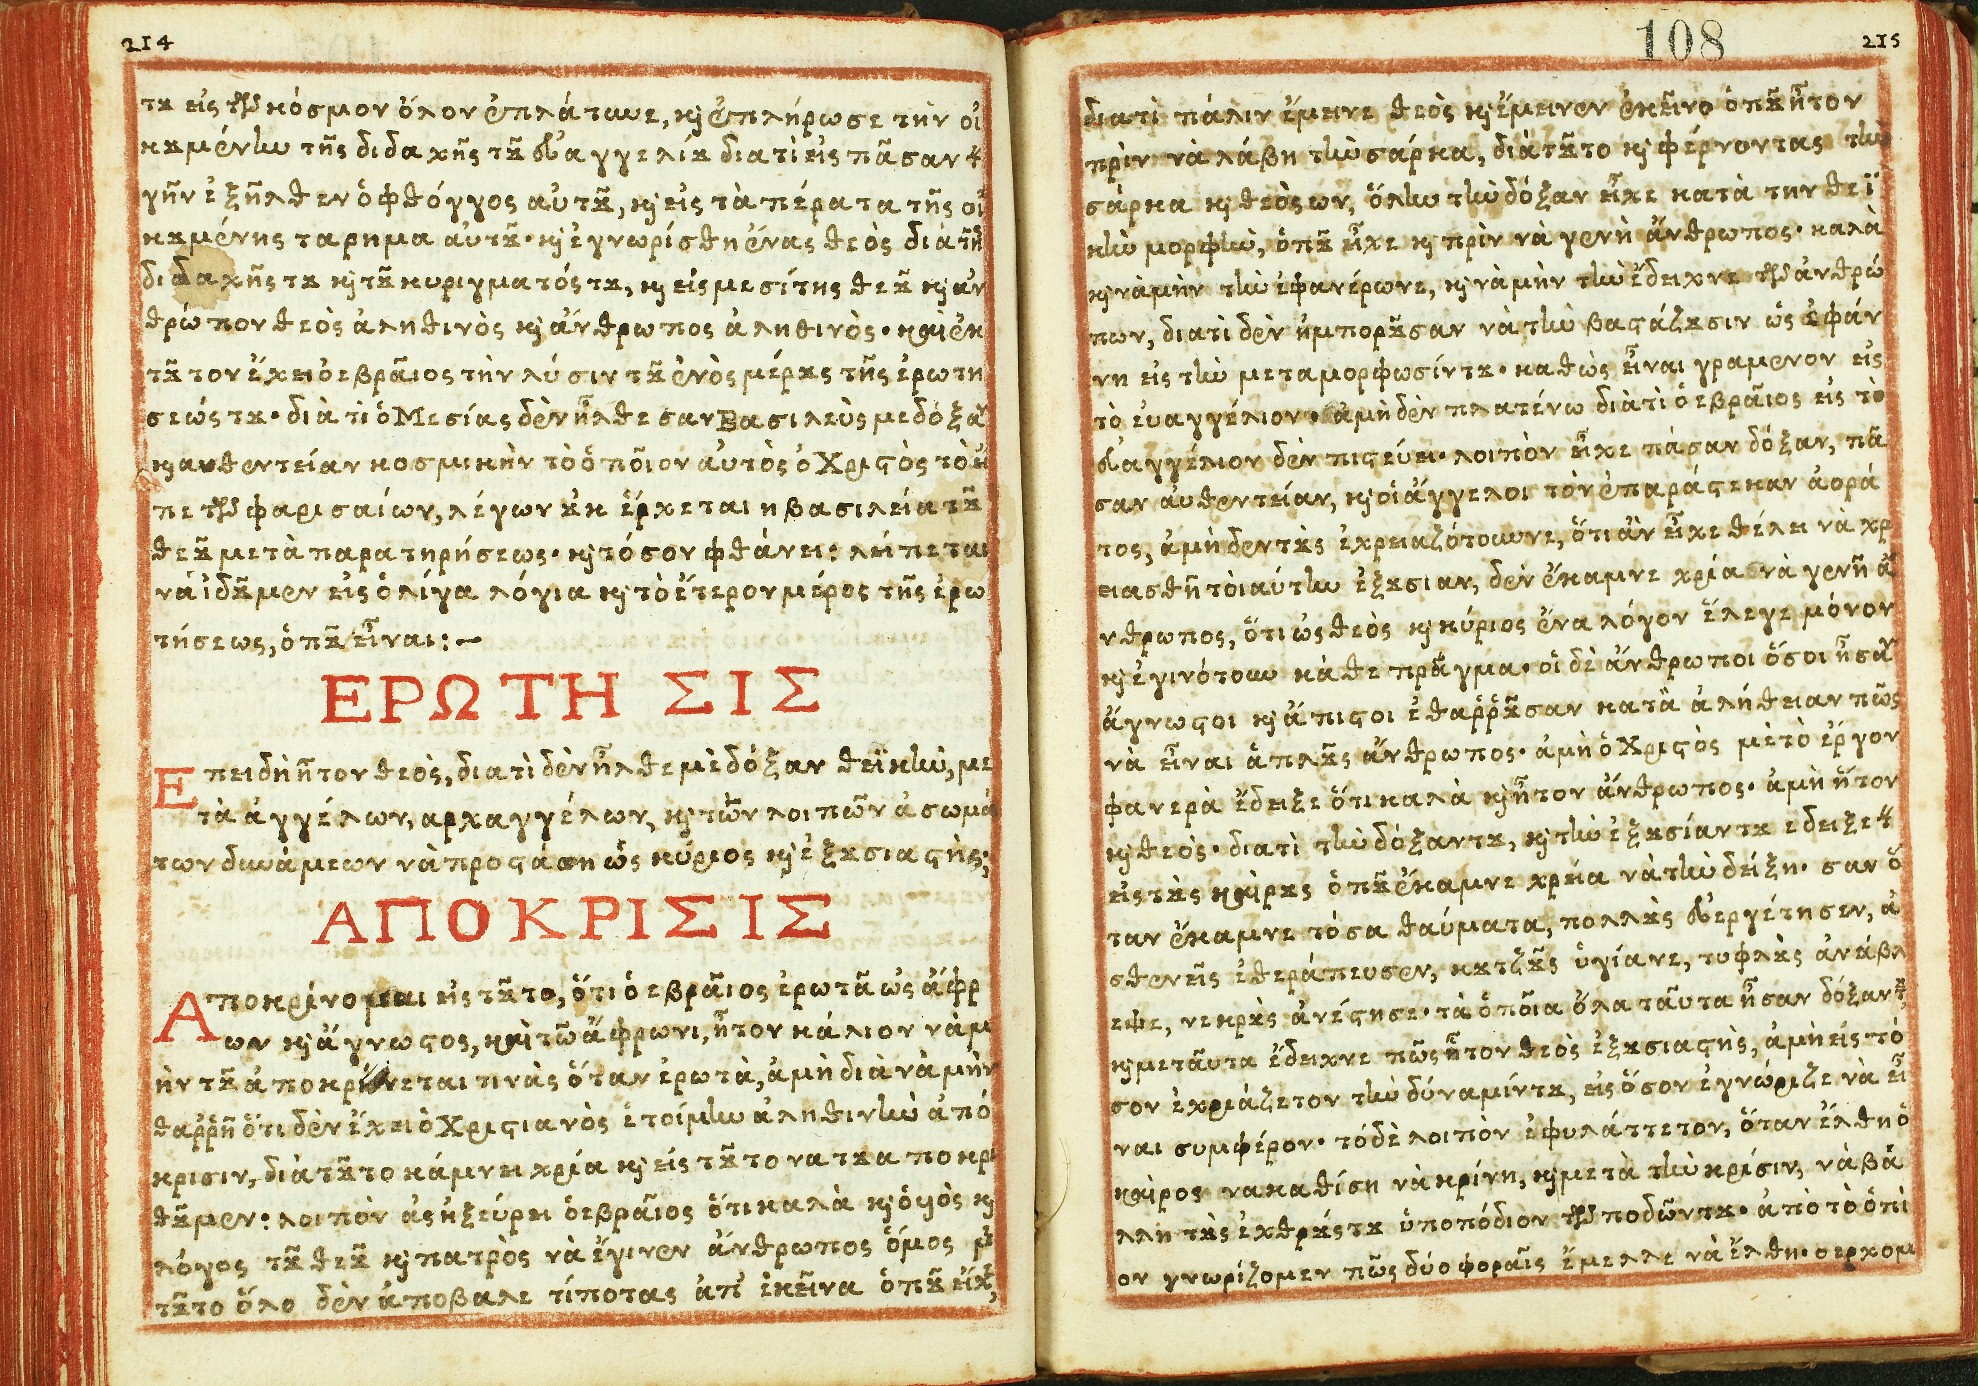 214
τȣ εἰς τὸν κόσμον ὅλον ἐπλάτυνε, κὶ ἐπλήρωσε τὴν οἰ
κȣμένην τῆς διδαχῆς τȣ͂ εὐαγγελίȣ διατὶ εἰς πᾶσαν τὴν
γῆν ἐξῆλθεν ὁ φθόγγος αὐτȣ͂, κὶ εἰς τὰ πέρατα τῆς οἰ
κȣμένης τα ρηματα αὐτȣ͂· κὶ ἐγνωρίσθη ἕνας θεὸς διὰ τῆς
διδαχῆς τȣ κὶ τȣ͂ κυριγματός τȣ, κὶ εἷς μεσίτης θεȣ͂ κὶ ἀν
θρώπον θεὸς ἀληθινὸς κὶ ἄνθρωπος ἀληθινὸς· καὶ ἐκ
τȣ͂ τον ἔχει ὁ εβραῖος τὴν λύσιν τȣ͂ ἑνὸς μέρȣς τῆς ἐρωτη
σεώς τȣ· διὰ τὶ ὁ Μεσίας δὲν ἦλθε σαν Βασιλεὺς με δόξαν
κὶ αυθεντείαν κοσμικὴν τὸ ὁποῖον αὐτὸς ὁ Χριϛὸς τὸ εἶ
πε τῶν φαρισαίων, λέγων ȣ̓κ ἔρχεται η βασιλεία τȣ͂
θεȣ͂ μετὰ παρατηρήσεως· κὶ τόσον φθάνει; λείπεται
νὰ ἰδȣ͂μεν εἰς ὀλίγα λόγια κὶ τὸ ἕτερον μέρος τῆς ἐρω
τήσεως, ὁπȣ͂ εἶναι:~
ΕΡΩΤΗΣΙΣ
Επειδὴ ἦτον θεὸς, διατὶ δὲν ἦλθε μὲ δόξαν θεϊκὴν, με
τὰ ἀγγέλων, αρχαγγέλων, κὶ τῶν λοιπῶν ἀσωμά
των δυνάμεων νὰ προϛάσῃ ὡς κύριος κὶ ἐξȣσιαϛής;
ΑΠΟΚΡΙΣΙΣ
Αποκρίνομαι εἰς τȣ͂το, ὅτι ὁ εβραῖος ἐρωτᾶ ὡς ἄφρ
ων κὶ ἄγνωϛος, καὶ τῶ ἄφρωνι, ἦτον κάλιον νὰ μ
ὴν τȣ͂ ἀποκρίνεται τινὰς ὅταν ἐρωτὰ, ἀμὴ διὰ νὰ μὴν
θαῤῥῆ ὅτι δὲν ἔχει ὁ Χριϛιανὸς ἑτοίμην ἀληθινὴν ἀπό
κρισιν, διὰ τȣ͂το κάμνει χρία κὶ εἰς τȣ͂το να τȣ αποκρι
θȣ͂μεν· λοιπὸν ἂς ἠξεύρει ὁ εβραῖος ὅτι καλὰ κὶ ὁ υἱὸς κὶ
λόγος τȣ͂ θεȣ͂ κὶ πατρὸς νὰ ἔγινεν ἄνθρωπος ὅμος μὲ
τȣ͂το ὅλο δὲν ἀποβαλε τίποτας ἀπ' ἐκεῖνα ὁπȣ͂ εἶχε,
108
215
διατὶ πάλιν ἔμεινε θεὸς κὶ ἔμεινεν ἐκεῖνο ὁπȣ͂ ἦτον
πρὶν νὰ λάβη τὴν σάρκα, διὰ τȣ͂το κὶ φέρνοντας τὴν
σάρκα κὶ θεὸς ων, ὅλην τὴν δόξαν εἶχε κατὰ την θεϊ
κὴν μορφὴν, ὁπȣ͂ εἶχε κὶ πρὶν νὰ γενῆ ἄνθρωπος· καλὰ
κὶ νὰ μὴν τὴν ἐφανέρωνε, κὶ νὰ μὴν τὴν ἔδειχνε τῶν ἀνθρώ
πων, διατὶ δὲν ἠμπορȣ͂σαν νὰ τὴν βαϛάζȣσιν ὡς ἐφάν
νη εἰς τὴν μεταμορφωσίν τȣ· καθὼς εἶναι γραμενον εἰς
τὸ ἐυαγγέλιον· ἀμὴ δὲν πλατένω διὰ τὶ ὁ εβραῖος εἰς τὸ
εὐαγγέλιον δὲν πιϛεύει· λοιπὸν εἶχε πᾶσαν δόξαν, πᾶ
σαν ἀυθεντείαν, κὶ οἱ ἄγγελοι τὸν ἐπαράϛεκαν ἀορά
τος, ἀμὴ δεν τȣ̀ς ἐχρειαζότουνε, ὅτι ἂν εἶχε θέλει νὰ χρ
ειασθῆ τοιαύτην ἐξȣσιαν, δὲν ἔκαμνε χρία νὰ γενῆ ἄ
νθρωπος, ὅτι ὡς θεὸς κὶ κύριος ἕνα λόγον ἔλεγε μόνον
κὶ ἐγινότουν κάθε πρᾶγμα· οἱ δὲ ἄνθρωποι ὅσοι ἦσαν
ἄγνωϛοι κὶ ἄπιϛοι ἐθαῤῥȣ͂σαν κατὰ ἀλήθειαν πῶς
νὰ εἶναι ἁπλȣ͂ς ἄνθρωπος· ἀμὴ ὁ Χριϛὸς μὲ τὸ ἔργον
φανερὰ ἔδειξε ὅτι καλὰ κὶ ἦτον ἄνθρωπος· ἀμὴ ἦτον
κὶ θεὸς· διατὶ τὴν δόξαν τȣ, κὶ τὴν ἐξȣσίαν τȣ εδειξε την
εἰς τȣ̀ς καιρȣ̀ς ὁπȣ͂ ἔκαμνε χρεία νὰ τὴν δείξη· σαν ὅ
ταν ἔκαμνε τόσα θαύματα, πολλȣ̀ς εὐεργέτησεν, ἀ
σθενεῖς ἐθεράπευσεν, κȣτζȣ̀ς ὑγίανε, τυφλȣ̀ς ἀνάβλ
εψε, νεκρȣ̀ς ἀνέϛησε· τὰ ὁποῖα ὅλα ταῦτα ἦσαν δόξαν τȣ,
κὶ με ταῦτα ἔδειχνε πῶς ἦτον θεὸς ἐξȣσιαϛὴς, ἀμὴ εἰς τό
σον ἐχριάζετον τὴν δύναμίν τȣ, εἰς ὅσον ἐγνώριζε νὰ εἶ
ναι συμφέρον· τό δὲ λοιπὸν ἐφυλάττετον, ὅταν ἔλθη ὁ
καιρος να καθίση νὰ κρίνη, κὶ μετὰ τὴν κρίσιν, νὰ βά
λλη τȣ̀ς ἐχθρȣ́ς τȣ ὑποπόδιον τῶν ποδῶν τȣ· ἀπὸ τὸ ὁπὶ
ον γνωρίζομεν πῶς δύο φοραῖς ἔμελλε νὰ ἔλθη· ο ερχομ